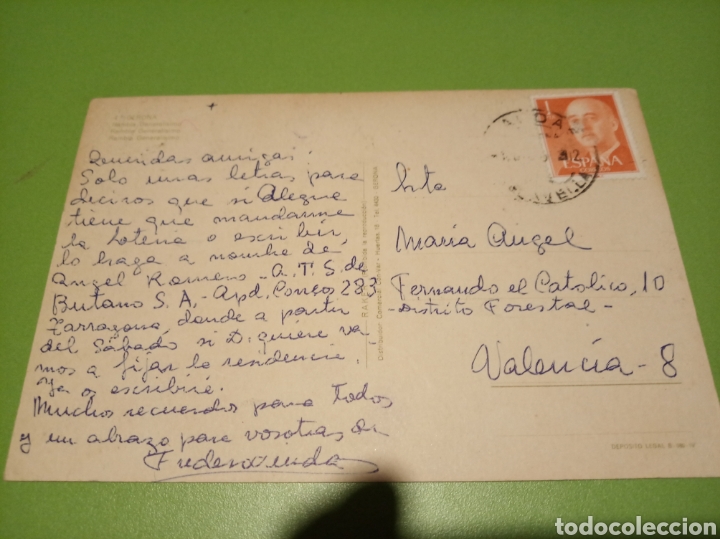 Queridas amigas:
Solo unas letras para
deciros que si Alegre
tiene que mandarme
la loteria o escribir,
lo haga a nombre de,
Angel Romero - A.T.S. de
Butano S.A. - Apd. Correos 283
Tarragona, donde a partir
del Sábado si D. quiere va-
mos a fijar la residencia,
Ya os escribiré.
Muchos recuerdos para todos
y un abrazo para vosotras de
ESPAÑA
Srta
María Angel
Fernando el Catolico, 10
- Distrito Forestal -
Valencia - 8
DEPOSITO LEGAL B.
todocoleccion